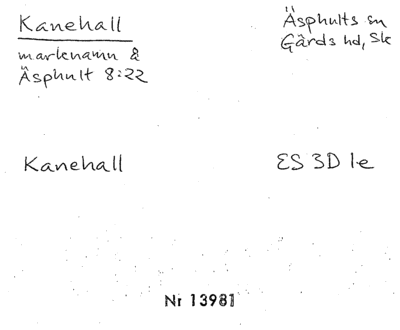 Kanehall
marknamn å
Äsphult 8:22
Äsphults sn
Gärds hd, Sk
Kanehall
ES 3D 1e
Nr 13981